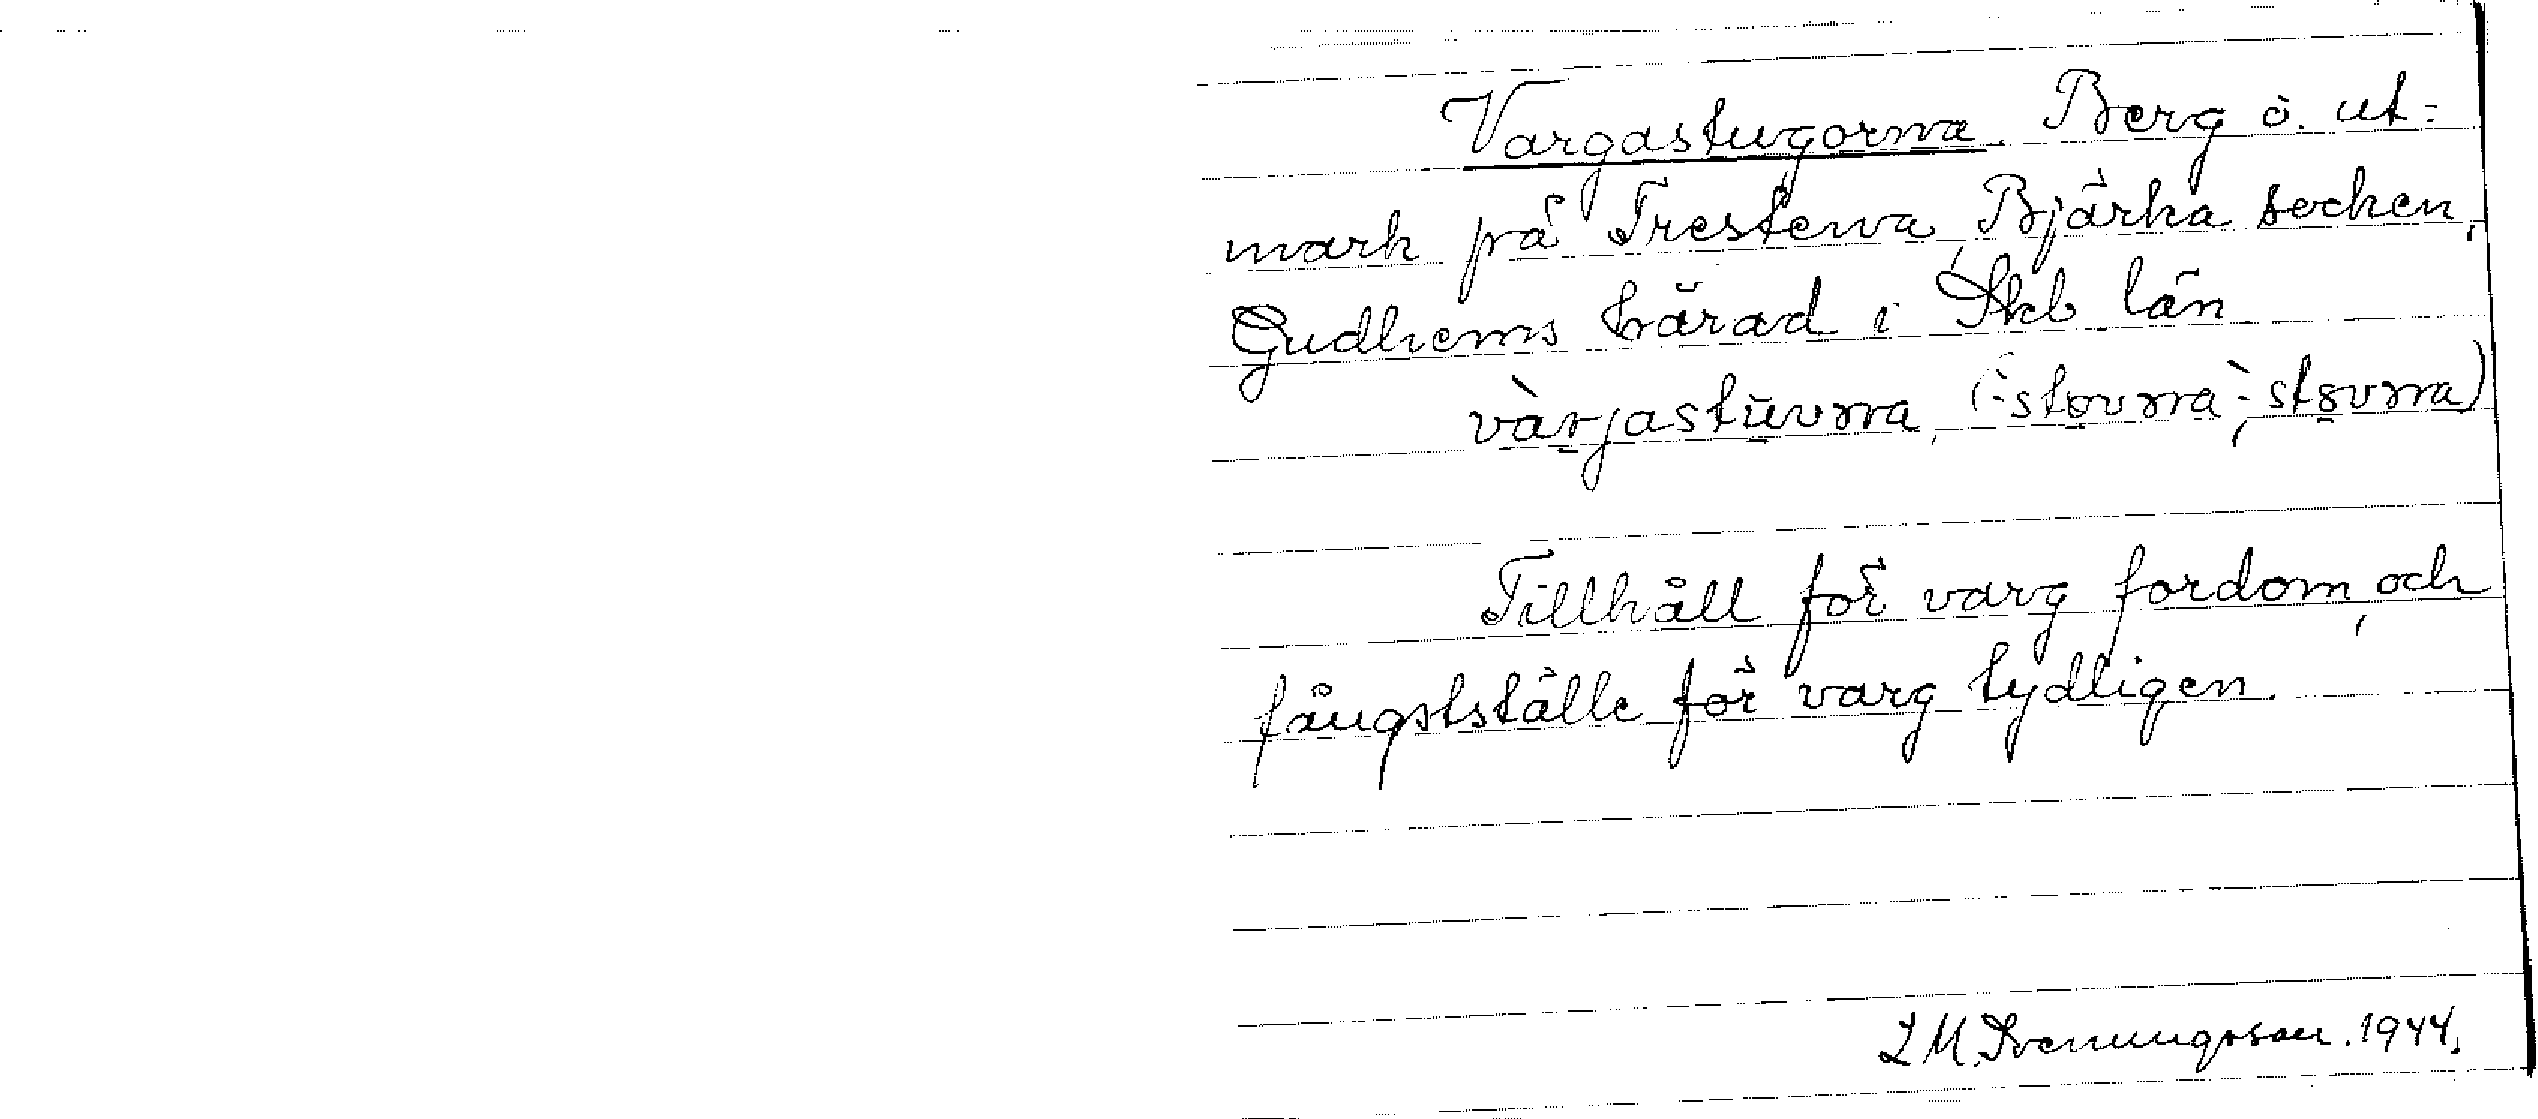 Vargastugorna. Berg o. ut-
mark på Trestena, Bjärka socken,
Gudhems härad i Skb län
vàrjastùvṛṇa, (-̀stovṛṇa, -̀støvṛṇa)
Tillhåll för varg fordom, och
fångstställe för varg tydligen.
L M Svenungsson. 1944.